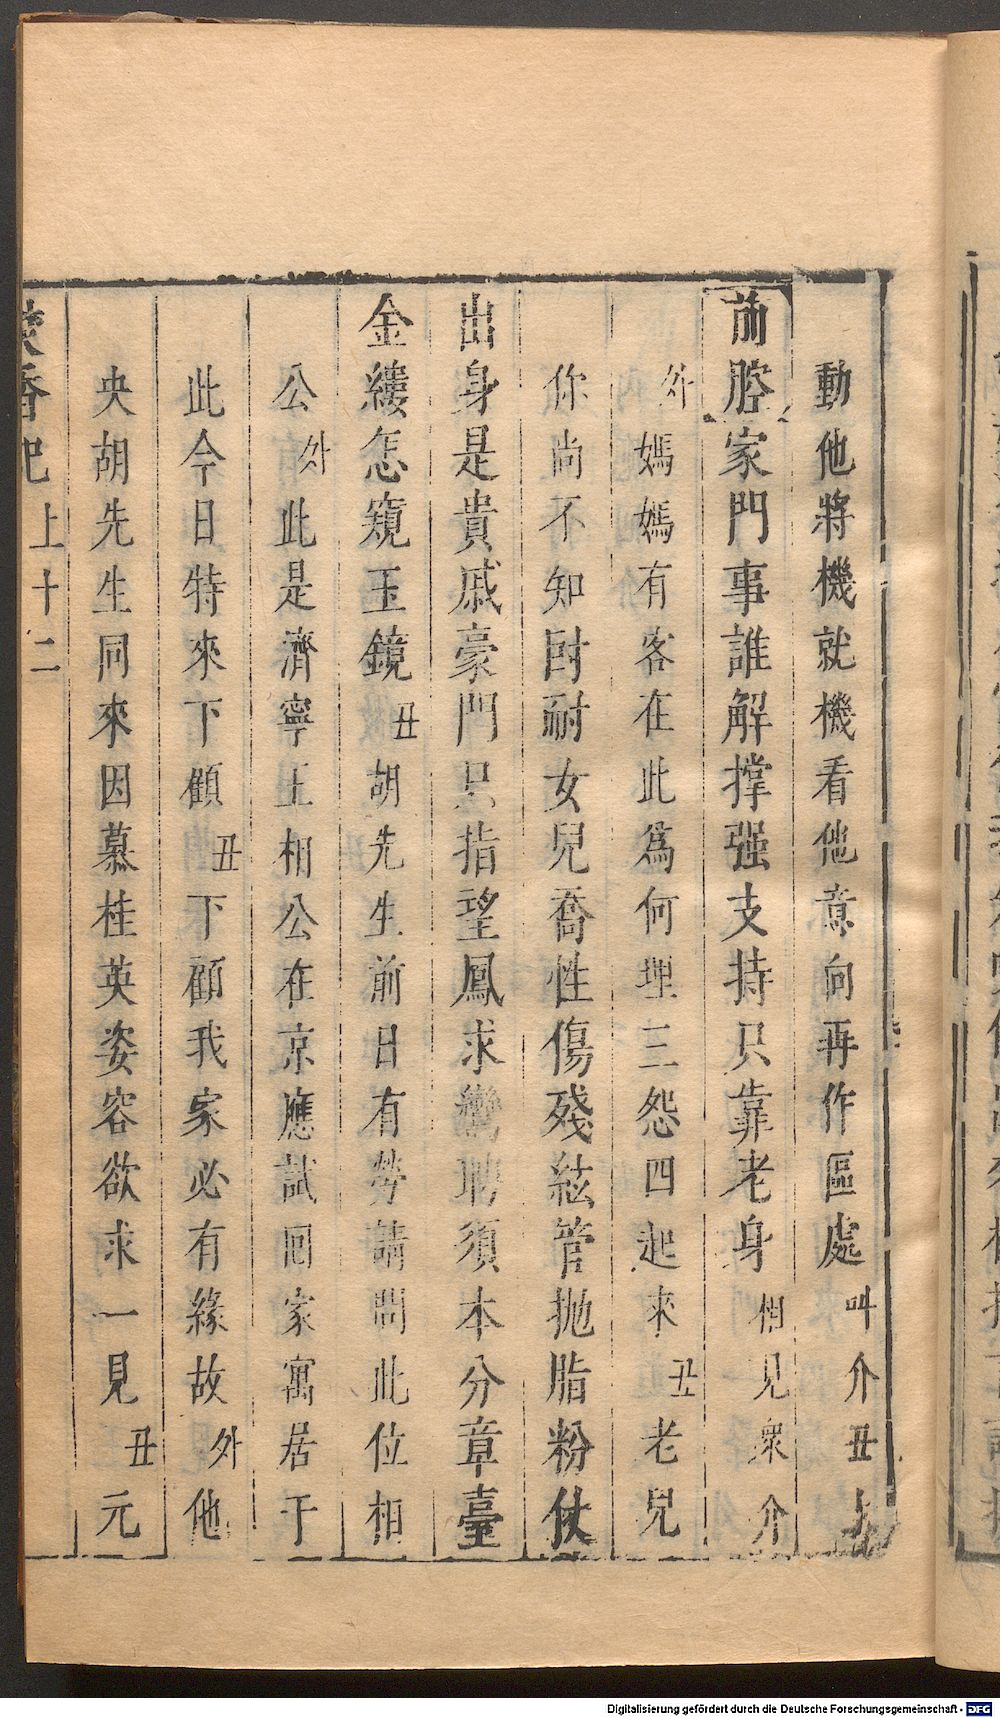 動他將機就機看他意向再作區處叫介丑上
前腔家門事誰解撑强支持只靠老身相見衆介
外媽媽有客在此爲何埋三怨四起來丑老兒
你尚不知尀耐女兒喬性傷殘絃管抛脂粉仗
出身是貴戚豪門只指望鳳求鸞聘須本分章臺
金縷怎窺玉鏡丑胡先生前日有勞請問此位相
公外此是濟寧王相公在京應試回家寓居于
此今日特來下顧丑下顧我家必有緣故外他
央胡先生同來因慕桂英姿容欲求一見丑元
香記 上 十二
Digitalisierung gefördert durch die Deutsche Forschungsgemeinschaft - DFG